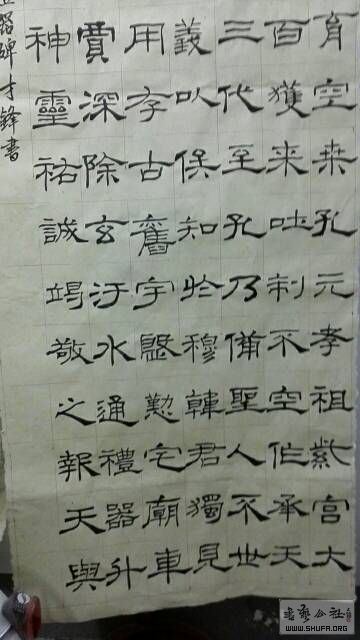 育空桒孔元孝祖紫宮大
百獲来吐制不空作承天
三代至孔乃備聖人不世
義以保知於穆韓君獨見
用存古舊宇殹懃宅廟車
賈深除玄汙水通禮器升
神靈祐誠竭敬之報天與
器碑才鋒書
书艺公社
WWW.SHUFA.ORG